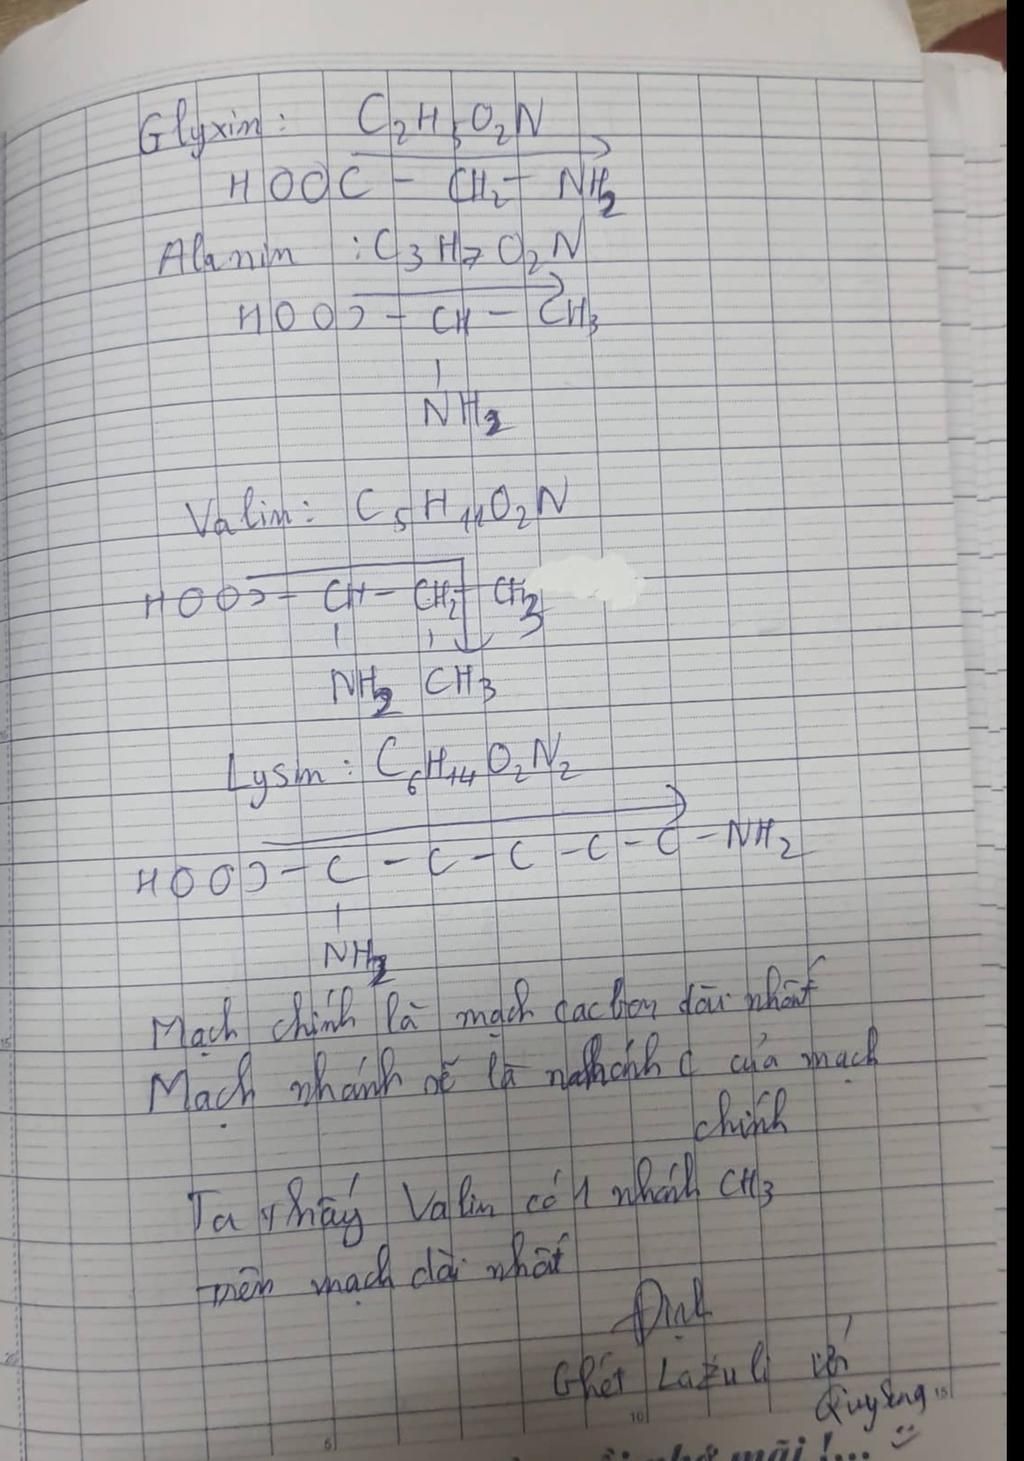 Glyxin: C2H5O2N
HOOC - CH2 - NH2
Alanin : C3H7O2N
HOOC - CH - CH3
NH2
Valin: C5H11O2N
HOOC - CH - CH2 CH3
NH2 CH3
Lysin: C6H14O2N2
HOOC - C - C - C - C - C - NH2
NH2
Mạch chính là mạch cacbon dài nhất
Mạch nhánh sẽ là nhánh C của mạch
chính
Ta thấy Valin có 1 nhánh CH3
trên mạch dài nhất
Ghét Lazuli
15
10
5
mãi!...